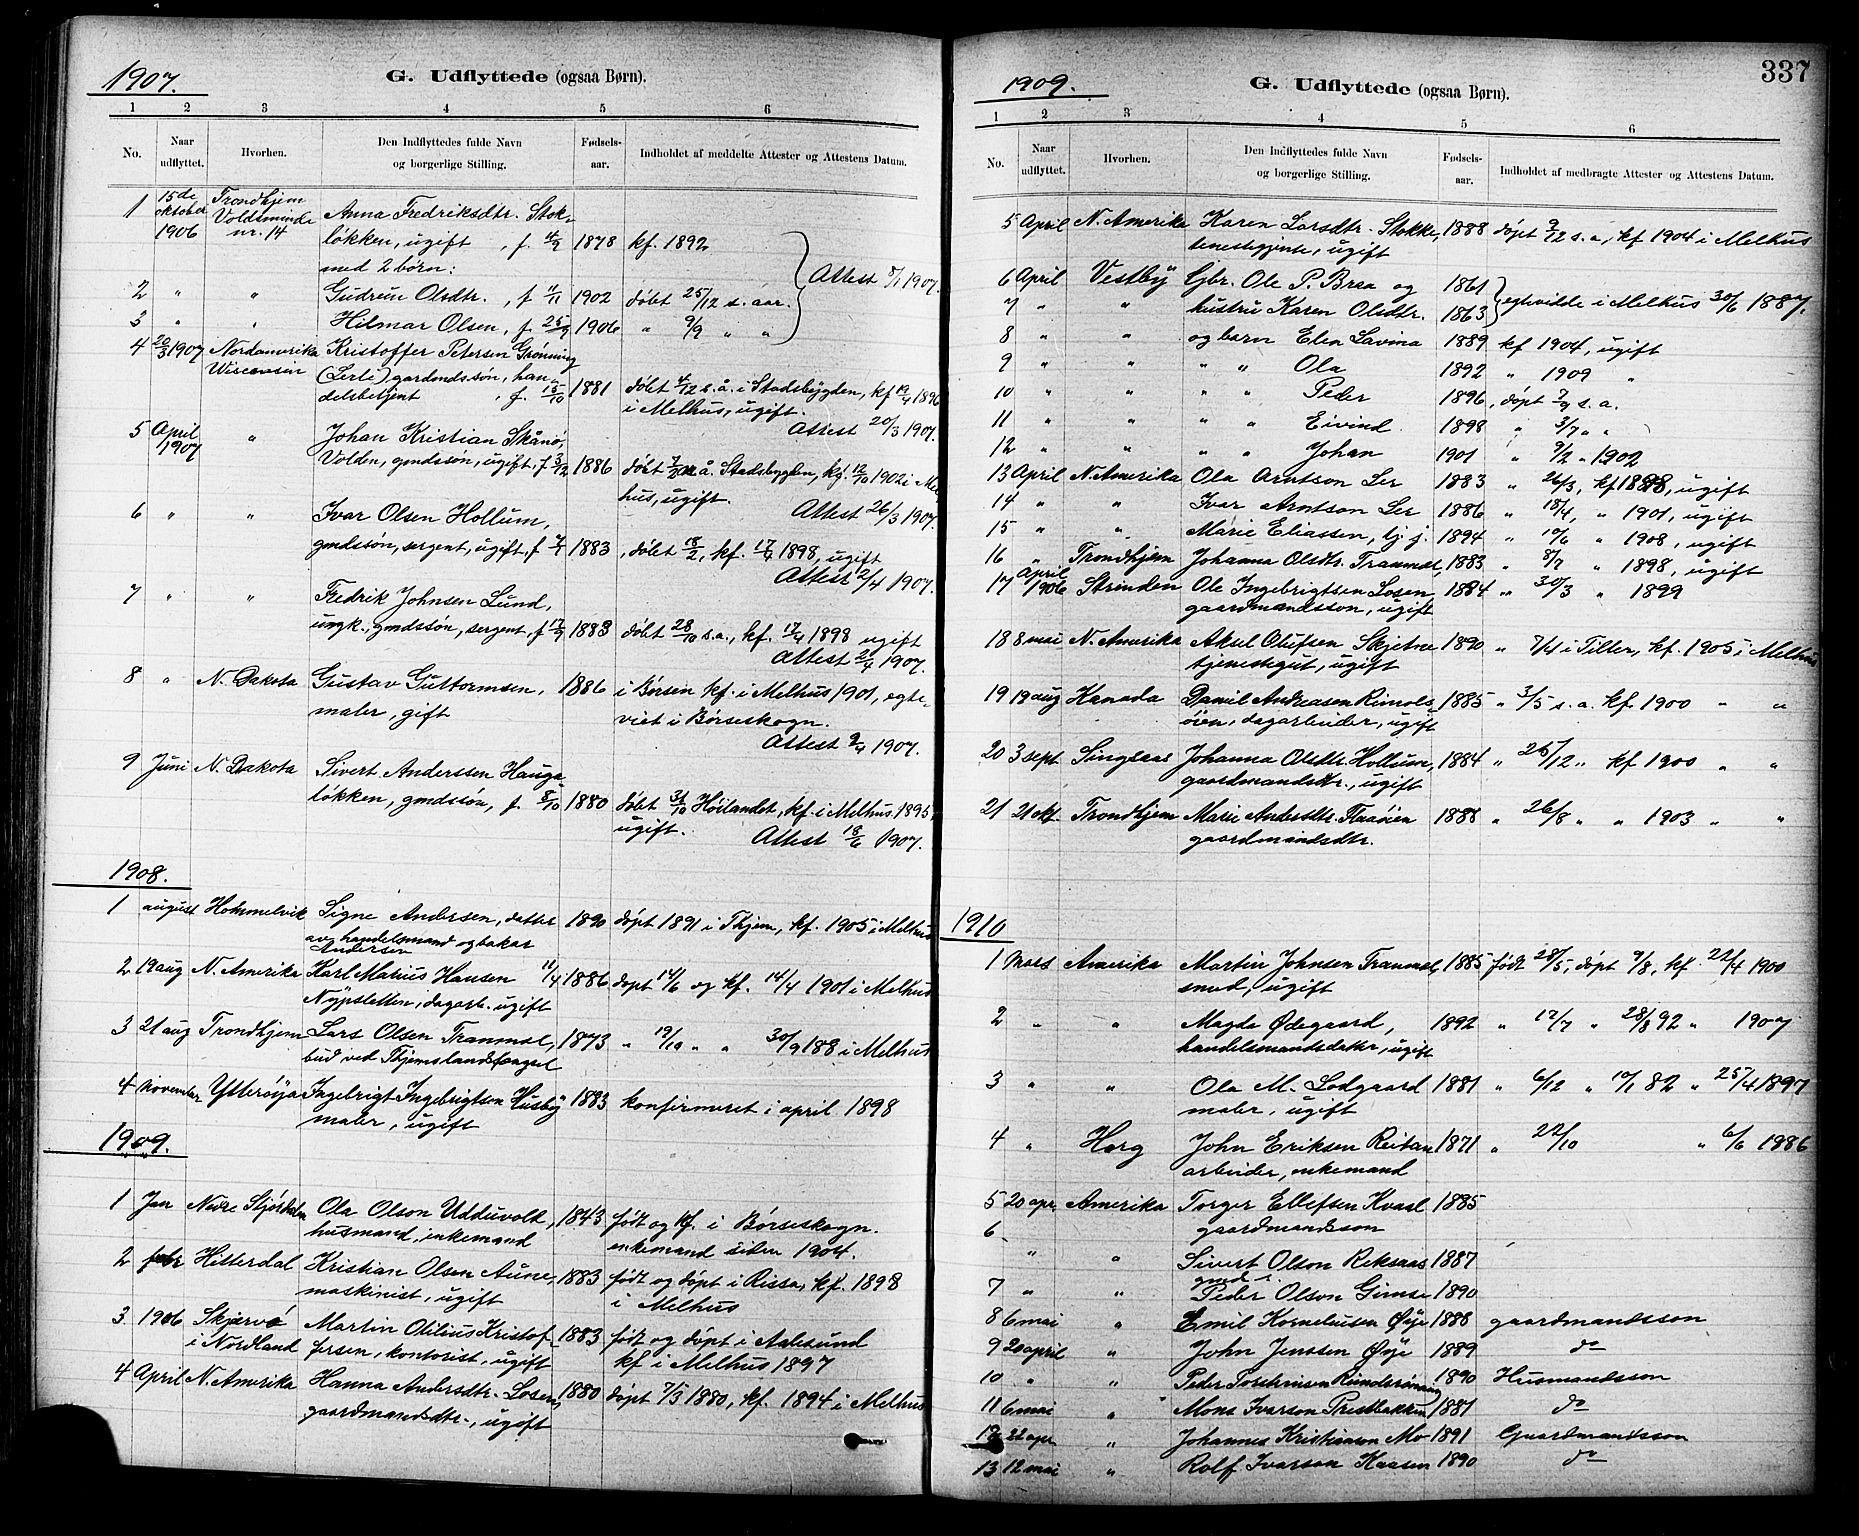 1907.
G. Udflyttede (ogsaa Børn).
1 2 3 4 5 6
No. Naar udflyttet. Hvorhen. Den Indflyttedes fulde Navn og borgerlige Stilling. Fødsels-aar. Indholdet af meddelte Attester og Attestens Datum.
1 15de oktober 1906 Trondhjem Voldsminde nr. 14 Anna Fredriksdtr. Stok-
løkken, ugift, f. 1878 kf. 1892
med 2 børn: Attest 8/1 1907.
2 " " Gudrun Olsdtr., f 11/11 1902 døbt 25/12 s. aar.
3 " " Hilmar Olsen, f. 1906 " 9/9 " "
4 20/3 1907 Nordamerika Wisconsin Kristoffer Petersen Grønning
(Lerli) gardmds.søn, han-
delsbetjent, f. 15/10 1881 døbt 4/12 s. å. i Stadsbygden, kf 19/4 1896
i Melhus, ugift.
Attest 20/3 1907.
5 April 1907 " Johan Kristian Skånø,
Volden, gmdssøn, ugift, f 3/12 1886 døbt s. å. Stadsbygden, kf. 12/10 1902 i Mel
hus, ugift.
Attest 26/3 1907.
6 " " Ivar Olsen Hollum,
gmdssøn, sergent, ugift, f 1883, døbt 18/2, kf. 17/4 1898, ugift
Attest 2/4 1907.
7 " " Fredrik Johnsen Lund,
ungk., gmdssøn, sergent, f 17/9 1883 døbt 28/10 s. a., kf. 17/4 1898 ugift
Attest 2/4 1907.
8 " N. Dakota Gustav Guttormsen, 1886 i Børsen kf. i Melhus 1901, egte-
maler, gift viet i Børseskogn.
Attest 9/4 1907.
9 Juni N. Dakota Sivert Anderssen Hauga
løkken, gmdssøn, f. 8/10 1880 døbt 31/10 Høilandet, kf. i Melhus 1895,
ugift.
Attest 18/6 1907.
1908.
1 august Hommelvik Signe Andersen, datter 1890 døpt 1891 i Thjem, kf. 1905 i Melhus
av handelsmand og bakar
Andersen
2 19 aug N. Amerika Karl Marius Hansen 11/4 1886 døpt 14/6 og kf. 14/4 1901 i Melhus
Nypsletten, dagarb. ugift
3 21 aug Trondhjem Lars Olsen Tranmæl, 1873 " 19/10 " " 30/9 188 i Melhus
bud ved Thjems landsfængsel
4 November Ytterøya Ingebrigt Ingebrigtsen Husby 1883 konfirmeret i april 1898
maler, ugift
1909.
1 Jan Nedre Stjørdalen Ola Olson Udduvolt, 1843 født og kf. i Børseskogn.
husmand, enkemand enkemand siden 1904.
2 febr Hitterdal Kristian Olsen Aune, 1883 født og døpt i Rissa, kf. 1898
maskinist, ugift i Melhus
3. 1906 Skjervø i Nordland Martin Otilius Kristof- 1883 født og døpt i Aalesund
fersen, kontorist, ugift kf i Melhus 1897
4 April N. Amerika Hanna Andersdtr. Losen, 1880 døpt 7/3 1880, kf. 1894 i Melhus
gaardmandsdtr., ugift
337
1909.
G. Udflyttede (ogsaa Børn).
1 2 3 4 5 6
No. Naar udflyttet. Hvorhen. Den Indflyttedes fulde Navn og borgerlige Stilling. Fødsels-aar. Indholdet af medbragte Attester og Attestens Datum.
5 April N. Amerika Karen Larsdtr. Stokke, 1888 døpt 2/12 s. a, kf 1904 i Melhus
tenestegjente, ugift
6 April Vestby Gbr. Ole P. Brea og 1861
7 " " hustru Karen Olsdtr. 1863 egtevidde i Melhus 30/6 1887.
8 " " og barn Elen Lavina 1889 kf 1904, ugift
9 " " " " Ola 1892 " 1909 "
10 " " " " Peder 1896, døpt 7/9 s. a.
11 " " " Eivind 1898 " 3/7 " "
12 " " " " Johan 1901 " 9/2 " 1902
13 April N. Amerika Ola Arntson Ler 1883 " 26/3, kf 1898, ugift
14 " " Ivar Arntson Ler 1886 " 18/4, " 1901, ugift
15 " " Marie Eliassen, tj. j. 1894 " 10/6 " 1908, ugift
16 " Trondhjem Johanna Olsdtr. Tranmæl, 1883 " 8/7 " 1898, ugift
17 April 1906 Strinden Ole Ingebrigtsen Losen, 1884 " 30/3 " 1899
gaardmandsson, ugift
18 8 mai N. Amerika Aksel Olufsen Skjetne 1890 " 7/4 i Tiller, kf. 1905 i Melhus
tjenestegut, ugift
19 19 aug Kanada Daniel Andreasen Rimols- 1885 " 3/5 s. a. kf 1900 " "
øien, dagarbeider, ugift
20 3 sept. Singsaas Johanna Olsdtr. Hollum, 1884 " 25/12 " kf 1900 " "
gaardmandsdtr., ugift
21 21 okt. Trondhjem Marie Andersdtr. Flaaøien 1888 " 26/8 " " 1903 " "
gaardmandsdtr.
1910
1 Mars Amerika Martin Johnsen Tranmæl, 1885 født 28/5, døpt 9/8, kf. 22/4 1900
smed, ugift
2 " " Magda Ødegaard, 1892 " 17/7 " 28/8 92 " 1907
handelsmandsdatter, ugift
3 " " Ola M. Lodgaard 1881 " 6/12 " 10/1 82 " 25/4 1897
maler, ugift
4 " Horg John Eriksen Reitan 1871 " 22/10 " 6/6 1986
arbeider, enkemand
5 20 apr. Amerika Torger Ellefsen Kvaal 1885
6 gaardmandsson
" " Sivert Olson Reksaas 1887
gmds.
7 " " Peder Olson Gimse 1890
8 6 mai " Emil Korneliusen Øye 1888 gaardmandsson
9 20 april " John Jenssen Øye 1889 do
10 " " Peder Torstensen 1890 Husmandsson
11 6 mai " Mons Ivarson Prestbakken 1881 do
12 22 apr " Johannes Kristianson Mo 1891 Gaardmandsson
13 12 mai " Rolf Ivarson Kaasen 1890 do